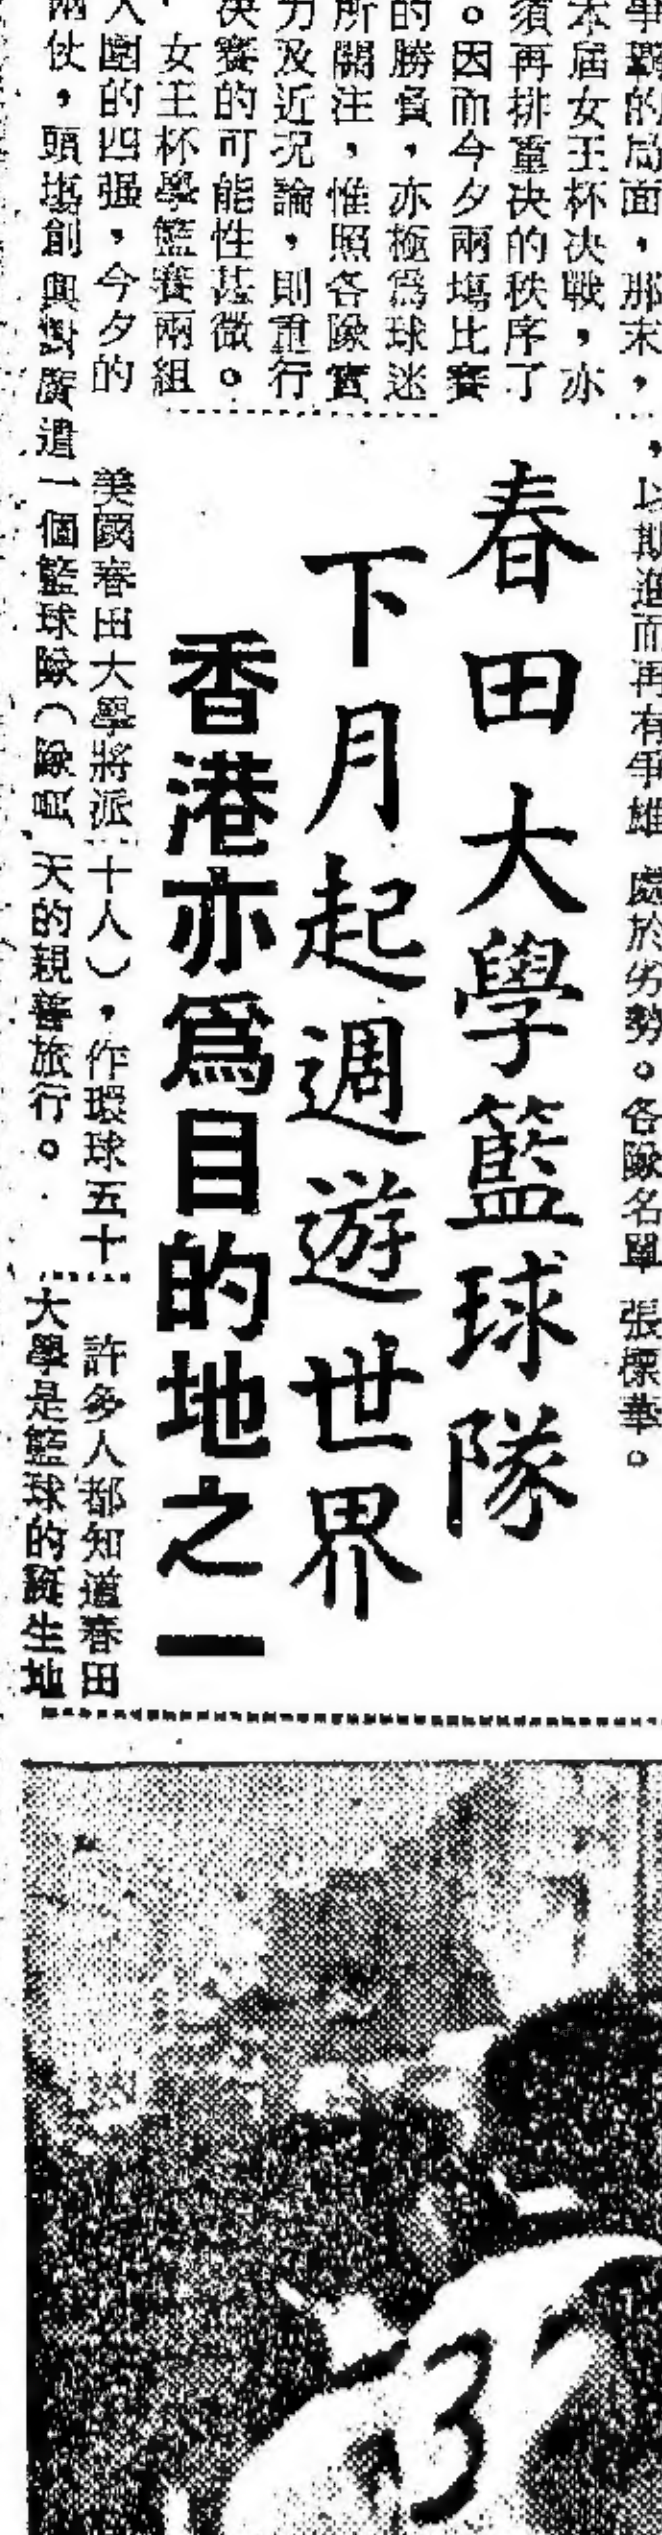 爭霸的局面，那末，
本屆女王杯決戰，亦
須再排重決的秩序了
。因而今夕兩塲比賽
的勝負，亦極爲球迷
所關注，惟照各隊實
力及近況論，則重行
決賽的可能性甚微。
女主杯學籃賽兩組
入圍的四强，今夕的
兩仗，頭塲創興對廣
，以期進而再有爭雄
處於劣勢。各隊名單
張標華。
春田大學籃球隊
下月起週遊世界
香港亦爲目的地之一
美國春田大學將派
遣一個籃球隊（隊員
十人），作環球五十
天的親善旅行。
許多人都知道春田
大學是籃球的誕生地
3